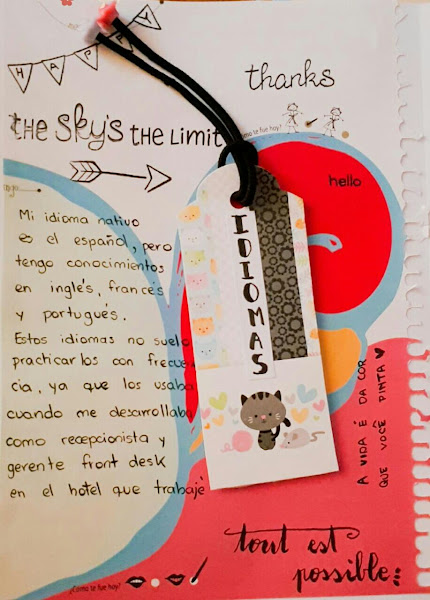 HAPPY
thanks
THE SKY'S THE LIMIT
¿Cómo te fue hoy?
hello
IDIOMAS
Mi idioma nativo
es el español, pero
tengo conocimientos
en inglés, francés
y portugués.
Estos idiomas no suelo
practicarlos con frecuen
cia, ya que los usaba
cuando me desarrollaba
como recepcionista y
gerente front desk
en el hotel que trabajé
A VIDA É DA COR
QUE VOCÊ PINTA
tout est
possible...
¿Cómo te fue hoy?